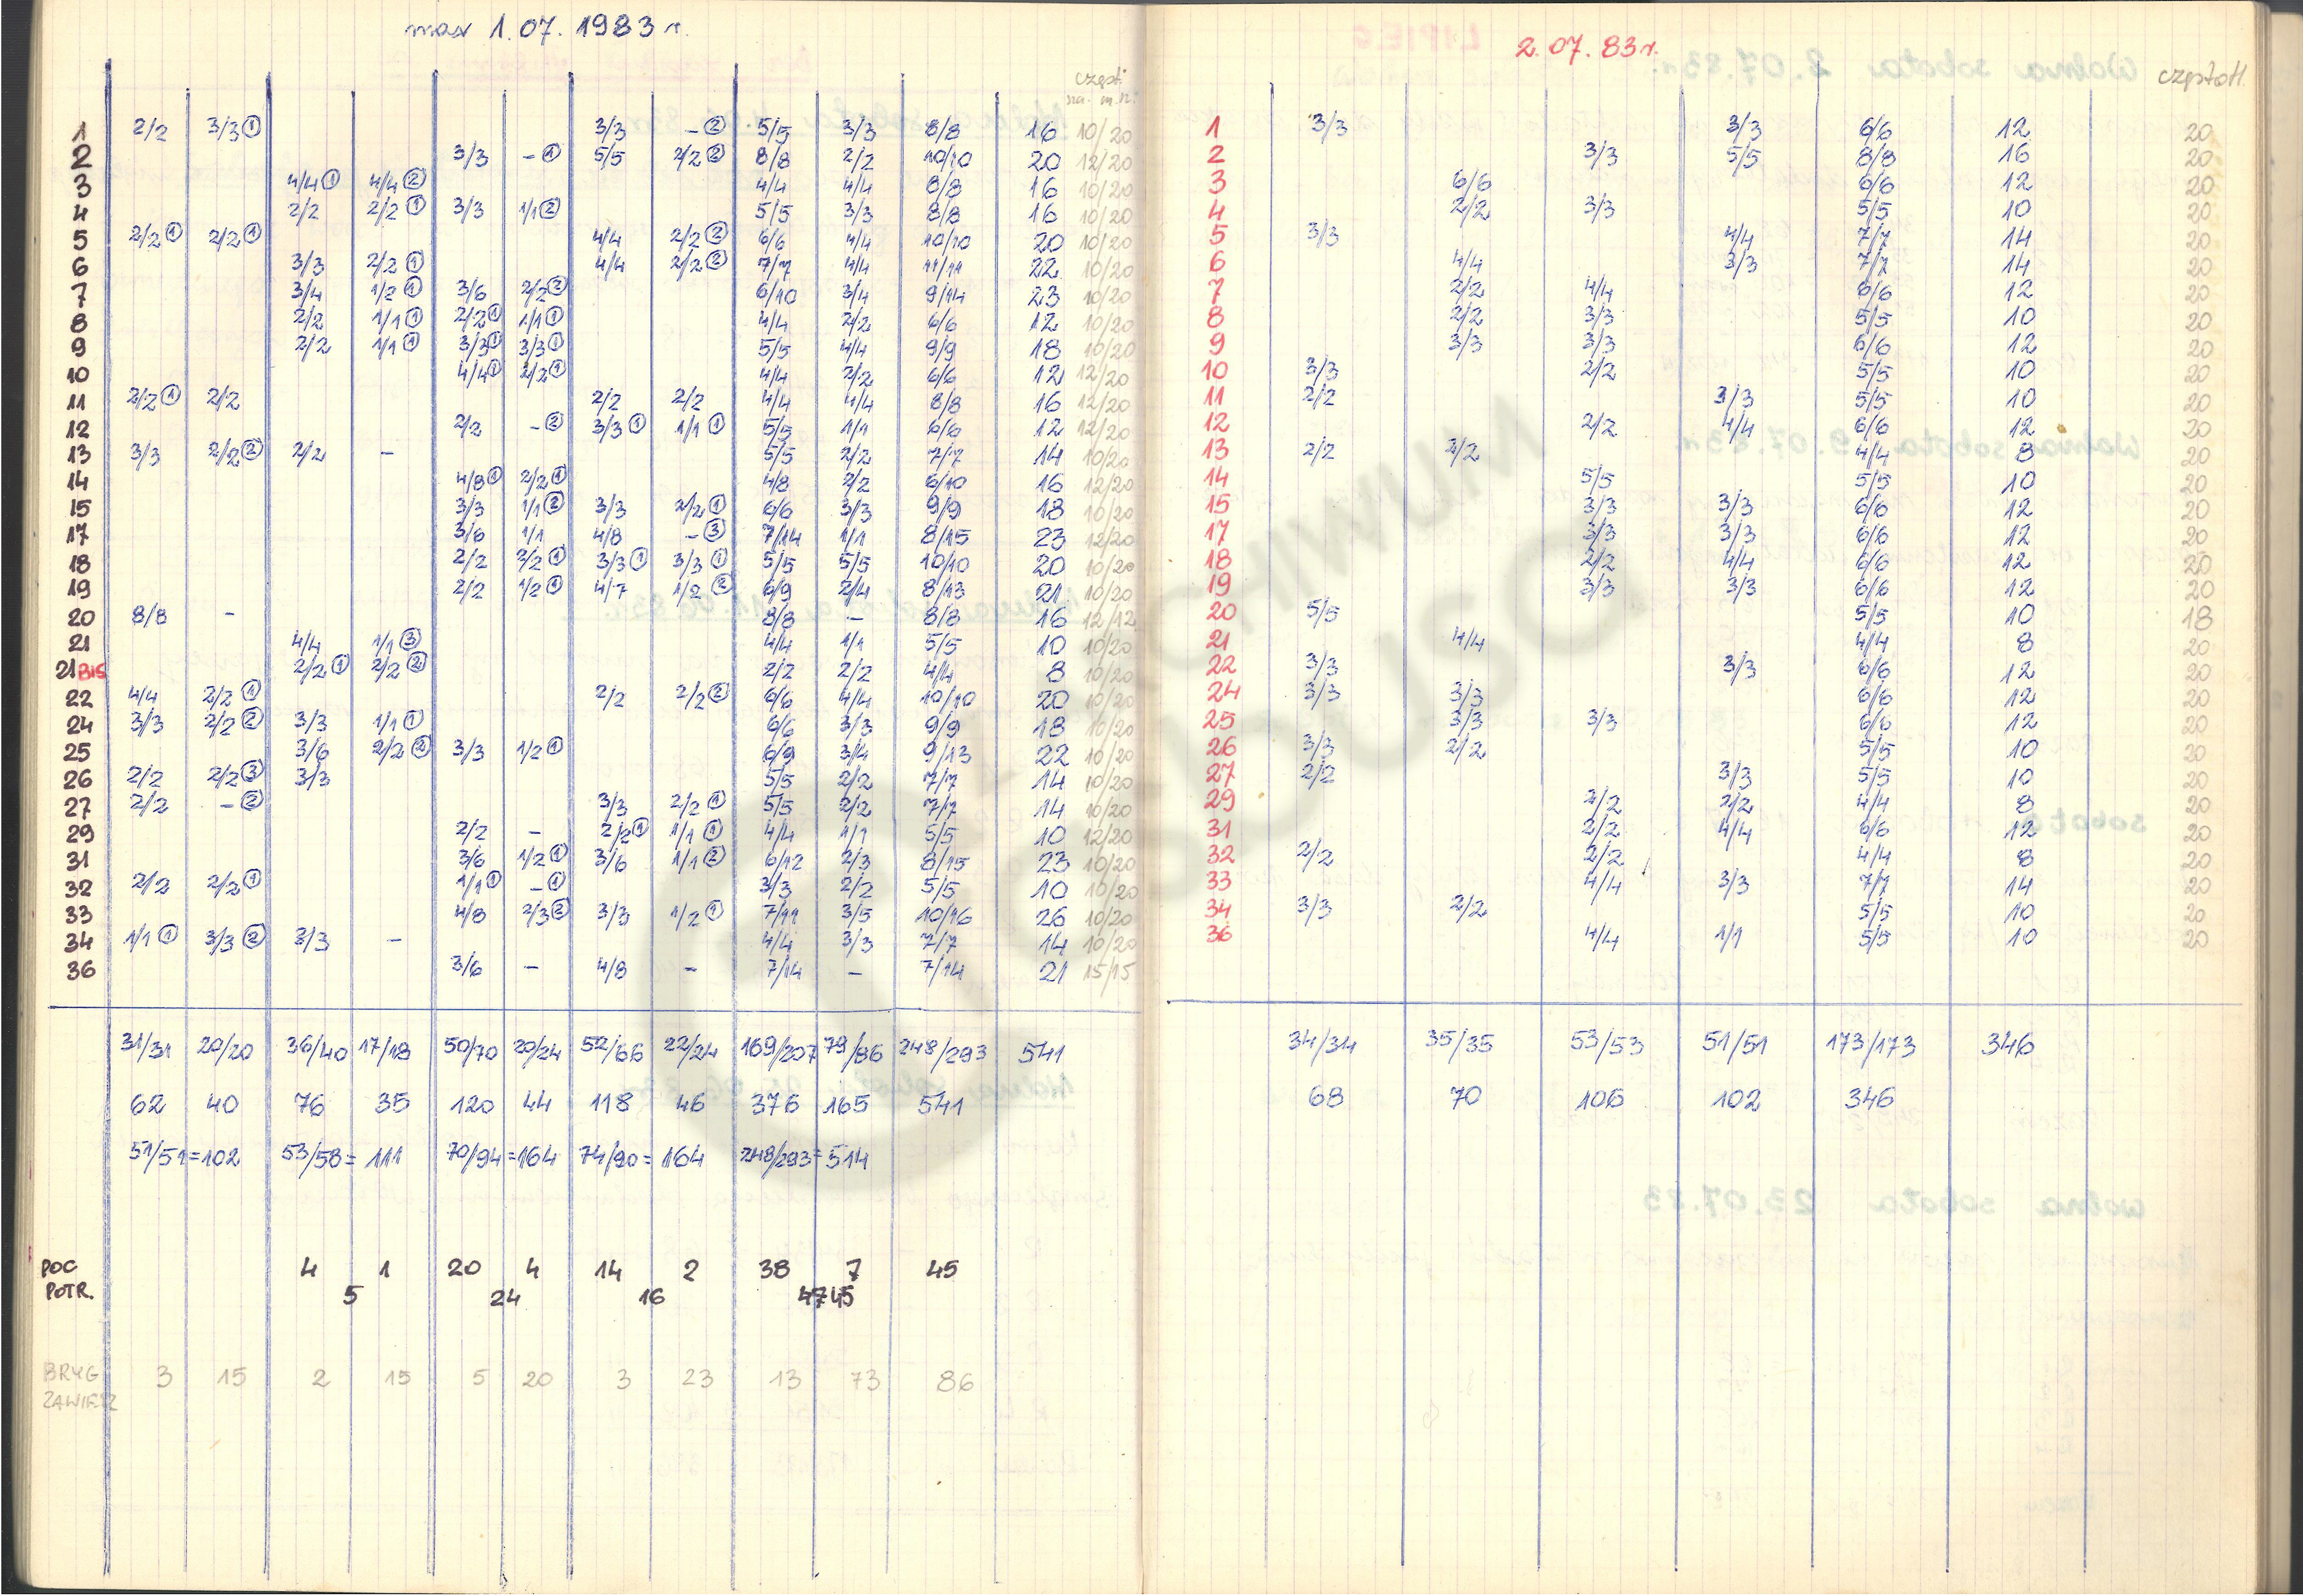 max 1.07.1983 r.
częst.
sz. m.sz.
1 2/2 3/3① 3/3 -② 5/5 3/3 8/8 16 10/20
2 3/3 -① 5/5 2/2② 8/8 2/2 10/10 20 12/20
3 4/4① 4/4② 4/4 4/4 8/8 16 10/20
4 2/2 2/2① 3/3 1/1② 5/5 3/3 8/8 16 10/20
5 2/2① 2/2① 4/4 2/2② 6/6 4/4 10/10 20 10/20
6 3/3 2/2① 4/4 2/2② 7/7 4/4 11/11 22 10/20
7 3/4 1/2① 3/6 2/2② 6/10 3/4 9/14 23 10/20
8 2/2 1/1① 2/2① 1/1① 4/4 2/2 6/6 12 10/20
9 2/2 1/1① 3/3① 3/3① 5/5 4/4 9/9 18 10/20
10 4/4① 2/2① 4/4 2/2 6/6 12 12/20
11 2/2① 2/2 2/2 2/2 4/4 4/4 8/8 16 12/20
12 2/2 -② 3/3① 1/1① 5/5 1/1 6/6 12 12/20
13 3/3 2/2② 2/2 - 5/5 2/2 7/7 14 10/20
14 4/8① 2/2① 4/8 2/2 6/10 16 12/20
15 3/3 1/1② 3/3 2/2① 6/6 3/3 9/9 18 10/20
17 3/6 1/1 4/8 -③ 7/14 1/1 8/15 23 12/20
18 2/2 2/2① 3/3① 3/3① 5/5 5/5 10/10 20 10/20
19 2/2 1/2① 4/7 1/2② 6/9 2/4 8/13 21 10/20
20 8/8 - 8/8 - 8/8 16 12/12
21 4/4 1/1③ 4/4 1/1 5/5 10 10/20
21 BIS 2/2① 2/2② 2/2 2/2 4/4 8 10/20
22 4/4 2/2① 2/2 2/2② 6/6 4/4 10/10 20 10/20
24 3/3 2/2② 3/3 1/1① 6/6 3/3 9/9 18 10/20
25 3/6 2/2② 3/3 1/2① 6/9 3/4 9/13 22 10/20
26 2/2 2/2③ 3/3 5/5 2/2 7/7 14 10/20
27 2/2 -② 3/3 2/2① 5/5 2/2 7/7 14 10/20
29 2/2 - 2/2① 1/1① 4/4 1/1 5/5 10 12/20
31 3/6 1/2① 3/6 1/1② 6/12 2/3 8/15 23 10/20
32 2/2 2/2① 1/1① -① 3/3 2/2 5/5 10 10/20
33 4/8 2/3② 3/3 1/2① 7/11 3/5 10/16 26 10/20
34 1/1① 3/3② 3/3 - 4/4 3/3 7/7 14 10/20
36 3/6 - 4/8 - 7/14 - 7/14 21 15/15
31/31 20/20 36/40 17/18 50/70 20/24 52/66 22/24 169/207 79/86 248/293 541
62 40 76 35 120 44 118 46 376 165 541
51/51=102 53/58=111 70/94=164 74/90=164 248/293=514
POC 4 1 20 4 14 2 38 7 45
POTR. 5 24 16 47 45
BRYG 3 15 2 15 5 20 3 23 13 73 86
ZAWIESZ
2.07.83r.
częstotl.
1 3/3 3/3 6/6 12 20
2 3/3 5/5 8/8 16 20
3 6/6 6/6 12 20
4 2/2 3/3 5/5 10 20
5 3/3 4/4 7/7 14 20
6 4/4 3/3 7/7 14 20
7 2/2 4/4 6/6 12 20
8 2/2 3/3 5/5 10 20
9 3/3 3/3 6/6 12 20
10 3/3 2/2 5/5 10 20
11 2/2 3/3 5/5 10 20
12 2/2 4/4 6/6 12 20
13 2/2 2/2 4/4 8 20
14 5/5 5/5 10 20
15 3/3 3/3 6/6 12 20
17 3/3 3/3 6/6 12 20
18 2/2 4/4 6/6 12 20
19 3/3 3/3 6/6 12 20
20 5/5 5/5 10 18
21 4/4 4/4 8 20
22 3/3 3/3 6/6 12 20
24 3/3 3/3 6/6 12 20
25 3/3 3/3 6/6 12 20
26 3/3 2/2 5/5 10 20
27 2/2 3/3 5/5 10 20
29 2/2 2/2 4/4 8 20
31 2/2 4/4 6/6 12 20
32 2/2 2/2 4/4 8 20
33 4/4 3/3 7/7 14 20
34 3/3 2/2 5/5 10 20
36 4/4 1/1 5/5 10 20
34/34 35/35 53/53 51/51 173/173 346
68 70 106 102 346